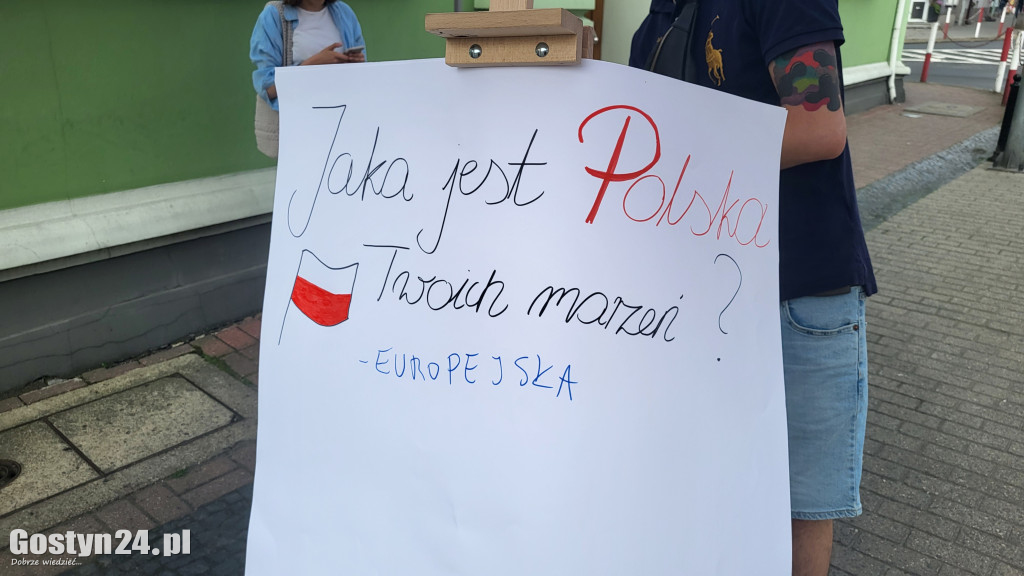 Jaka jest Polska
Twoich marzeń ?
-EUROPEJSKA
Gostyn24.pl
Dobrze wiedzieć...